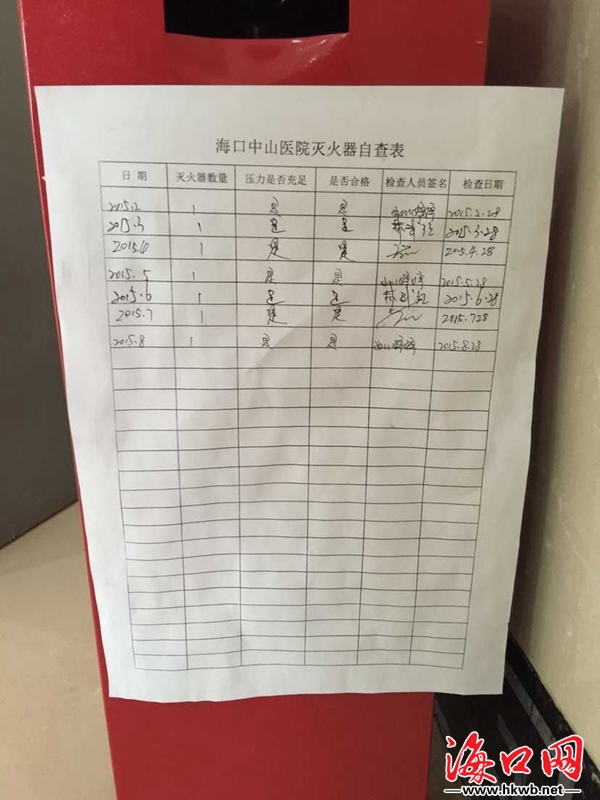 海口中山医院灭火器自查表
日期 灭火器数量 压力是否充足 是否合格 检查人员签名 检查日期
2015.2 1 是 是 2015.2.28
2015.3 1 是 是 2015.3.28
2015.6 1 是 是 2015.4.28
2015.5 1 是 是 2015.5.28
2015.6 1 是 是 2015.6.28
2015.7 1 是 是 2015.728
2015.8 1 是 是 2015.8.28
海口网
www.hkwb.net